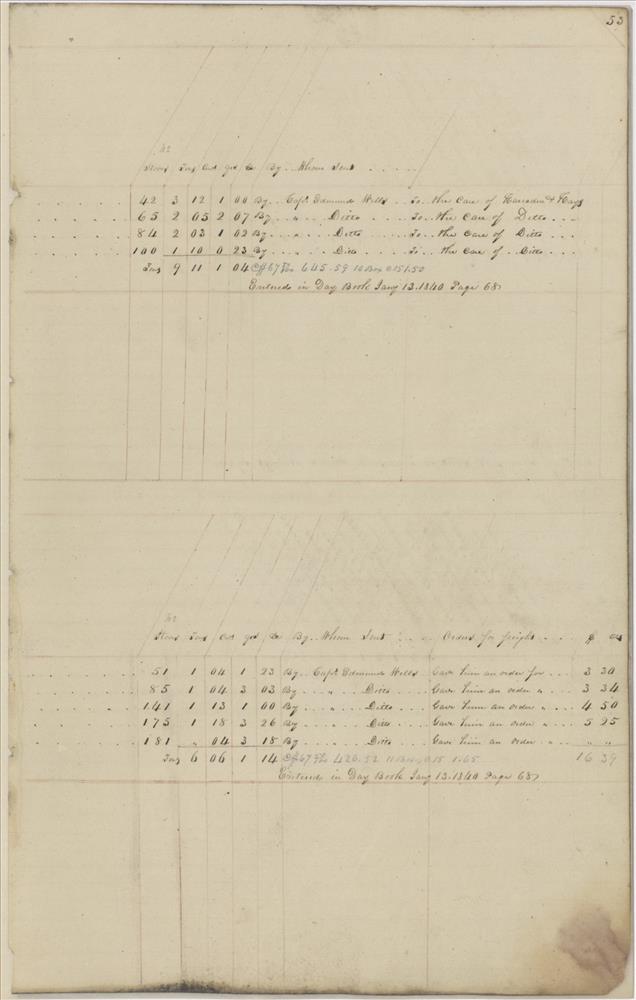 53
No
Stoves Tons Cwt qrs lbs By .. Whom Sent . . . . .
42 3 12 1 00 By .. Capt Edmund Wells .. To .. the care of & Hays
65 2 05 2 07 By .. " .. Ditto . . . . To .. the care of Ditto . . .
84 2 03 1 02 By .. " .. Ditto . . . . To .. the care of Ditto . . .
100 1 10 0 23 By .. " .. Ditto . . . . To .. the care of .. Ditto . . .
Tons 9 11 1 04 @ $67 645.59 10 Box 0.15 1.50
Entered in Day Book Jany 13. 1840 Page 68
No
Tons Cwt qrs lbs By .. Whom Sent . . . . Orders for freight . . . $ cts
51 1 04 1 23 By .. Capt Edmund Wells Gave him an order for . . . 3 30
85 1 04 3 03 By .. " .. Ditto . . Gave him an order " . . . 3 34
141 1 13 1 00 By . . " .. Ditto . . Gave him an order " . . . 4 50
175 1 18 3 26 By . . . . Ditto . . Gave him an order " . . . 5 25
181 " 04 3 18 By . . . . Ditto . . Gave him an order " . . " "
Tons 6 06 1 14 @ $67 423.52 11 Box 0.15 1.65 16 39
Entered in Day Book Jany 13. 1840 Page 68